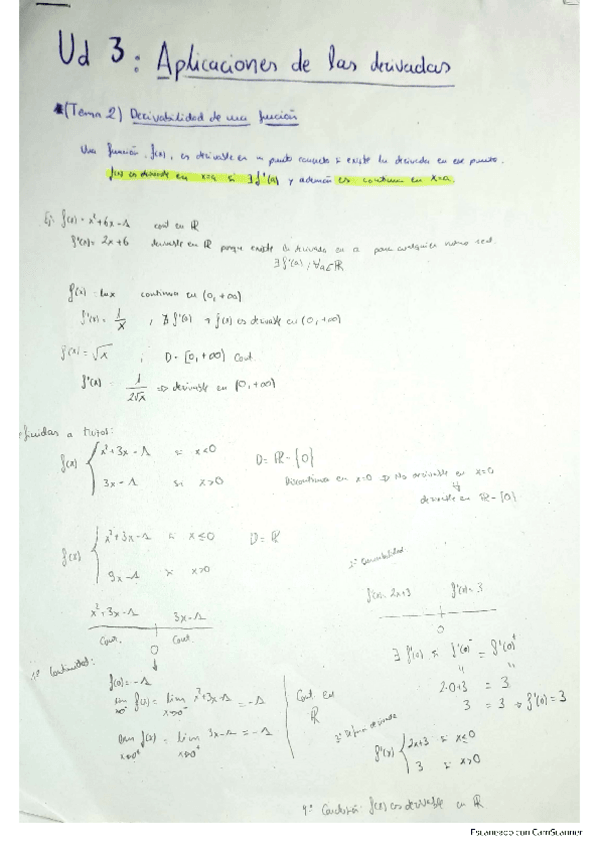 Ud 3: Aplicaciones de las derivadas
(Tema 2) Derivabilidad de una función
Una función, f(x), es derivable en un punto cuando si existe la derivada en ese punto.
f(x) es derivable en x=a si ∃ f'(a) y además es continua en x=a.
Ej: f(x) = x²+6x-1 cont en ℝ
f'(x) = 2x+6 derivable en ℝ porque existe la derivada en a para cualquier número real
∃ f'(a) ; ∀a∈ℝ
f(x) = ln x continua en (0, +∞)
f'(x) = 1/x , ∃ f'(a) → f(x) es derivable en (0, +∞)
f(x) = √x ; D = [0, +∞) Cont.
f'(x) = 1/2√x ⇒ derivable en (0, +∞)
finidas a trozos:
f(x) { x²+3x-1 si x<0
3x-1 si x>0
D = ℝ - {0}
Discontinua en x=0 ⇒ No derivable en x=0
derivable en ℝ-{0}
f(x) { x²+3x-1 si x≤0
3x-1 si x>0
D = ℝ
x²+3x-1 3x-1
Cont. Cont.
0
1º Continuidad:
f(0) = -1
lim x→0⁻ f(x) = lim x→0⁻ x²+3x-1 = -1
lim x→0⁺ f(x) = lim x→0⁺ 3x-1 = -1
Cont. en ℝ
2º Derivabilidad
f'(x)= 2x+3 f'(x)= 3
0
∃ f'(0) si f'(0)⁻ = f'(0)⁺
2·0+3 = 3
3 = 3 → f'(0)=3
derivada
f'(x) { 2x+3 si x≤0
3 si x>0
4º Conclusión: f(x) es derivable en ℝ
Escaneado con CamScanner